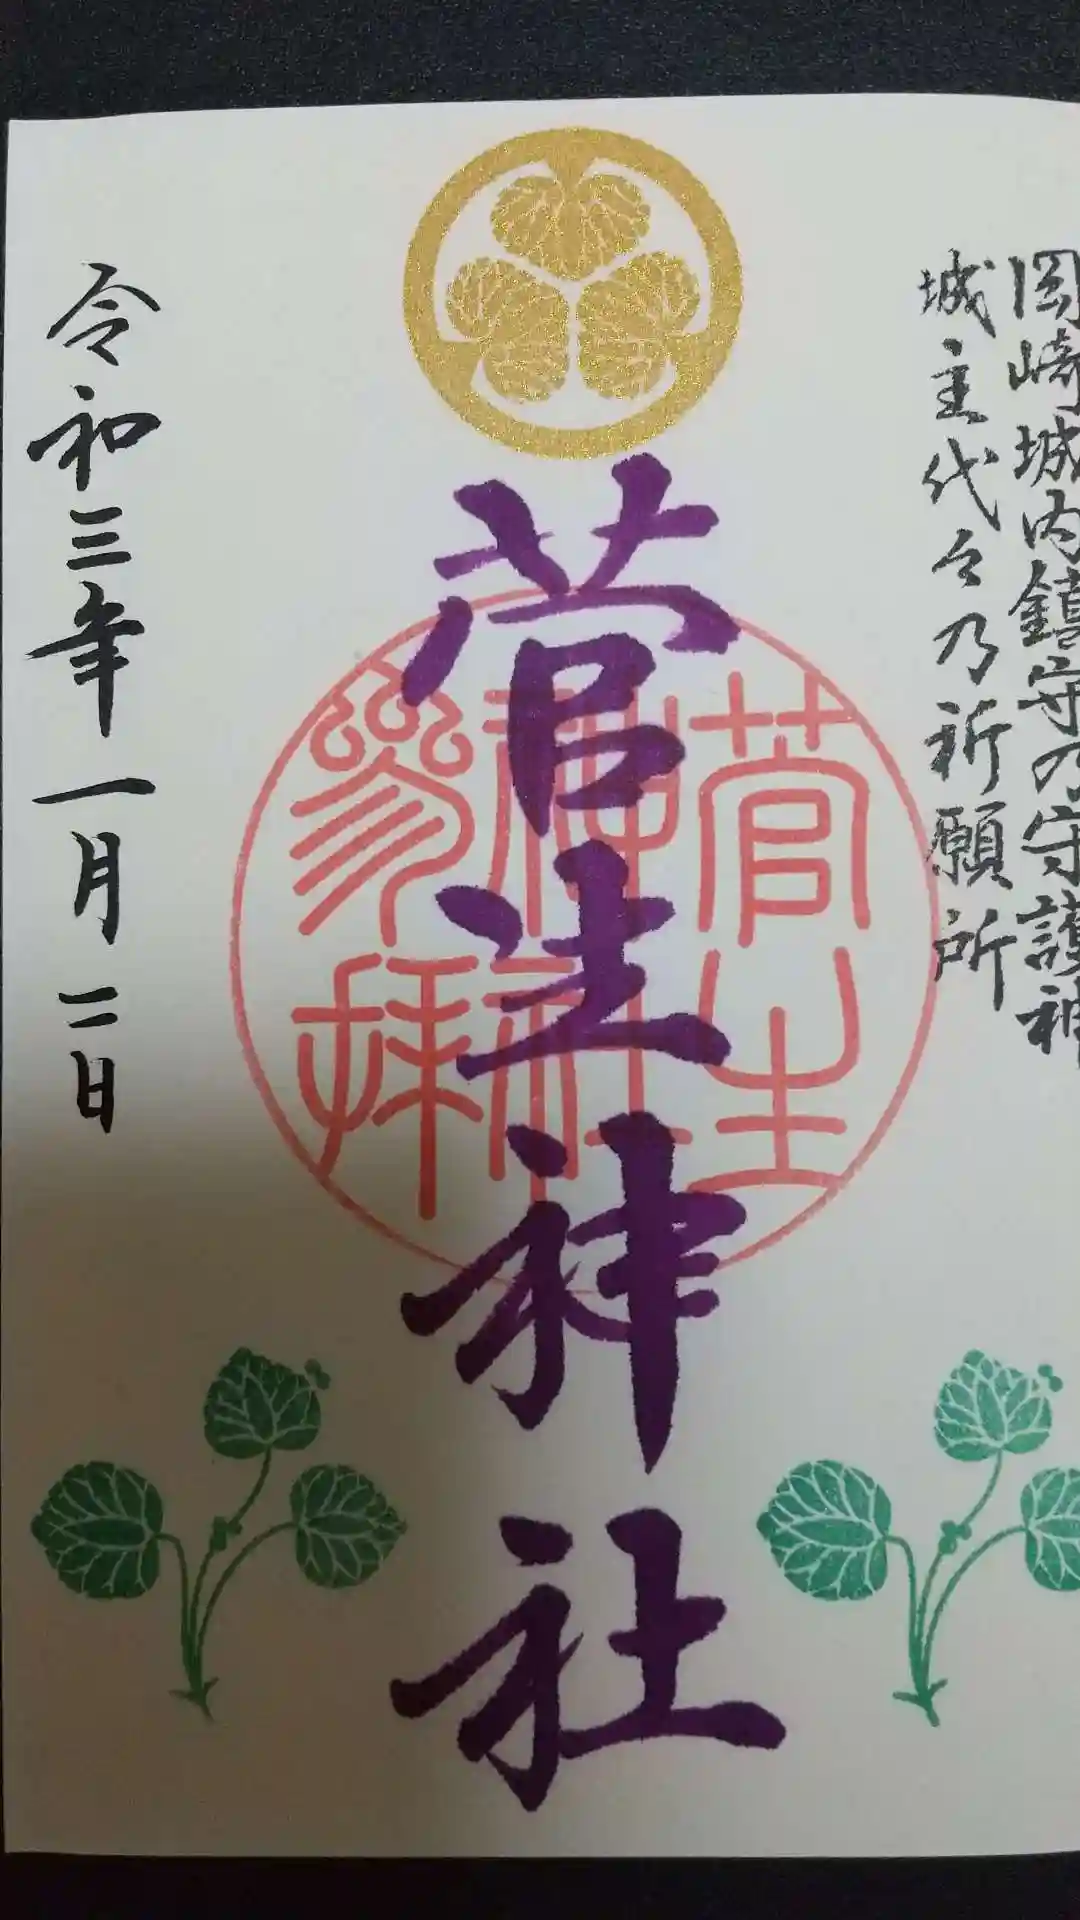 岡崎城内鎮守乃守護神
城主代々乃祈願所
菅生神社
菅生
神社
參拝
令和三年一月二日